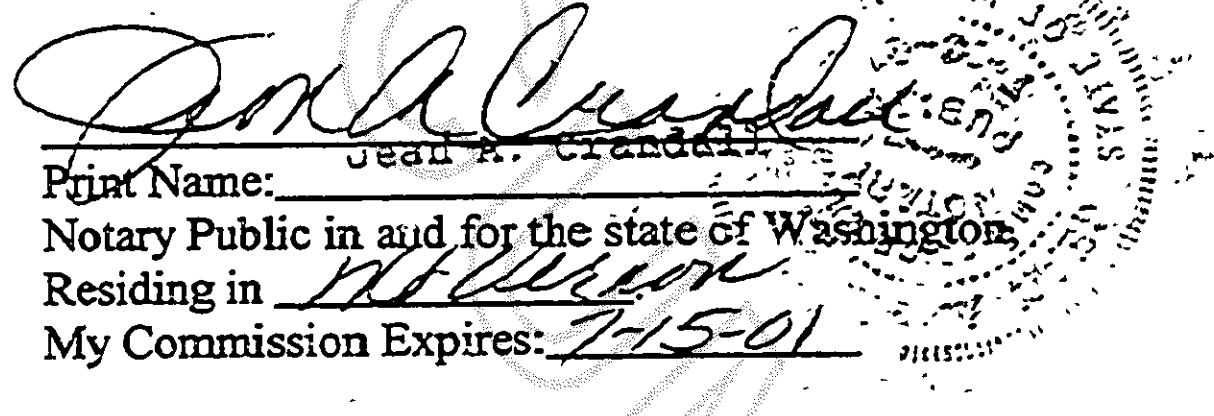 Jean A Crandall
Jean A. Crandall
Print Name:
Notary Public in and for the state of Washington,
Residing in Mt Vernon
My Commission Expires: 7-15-01